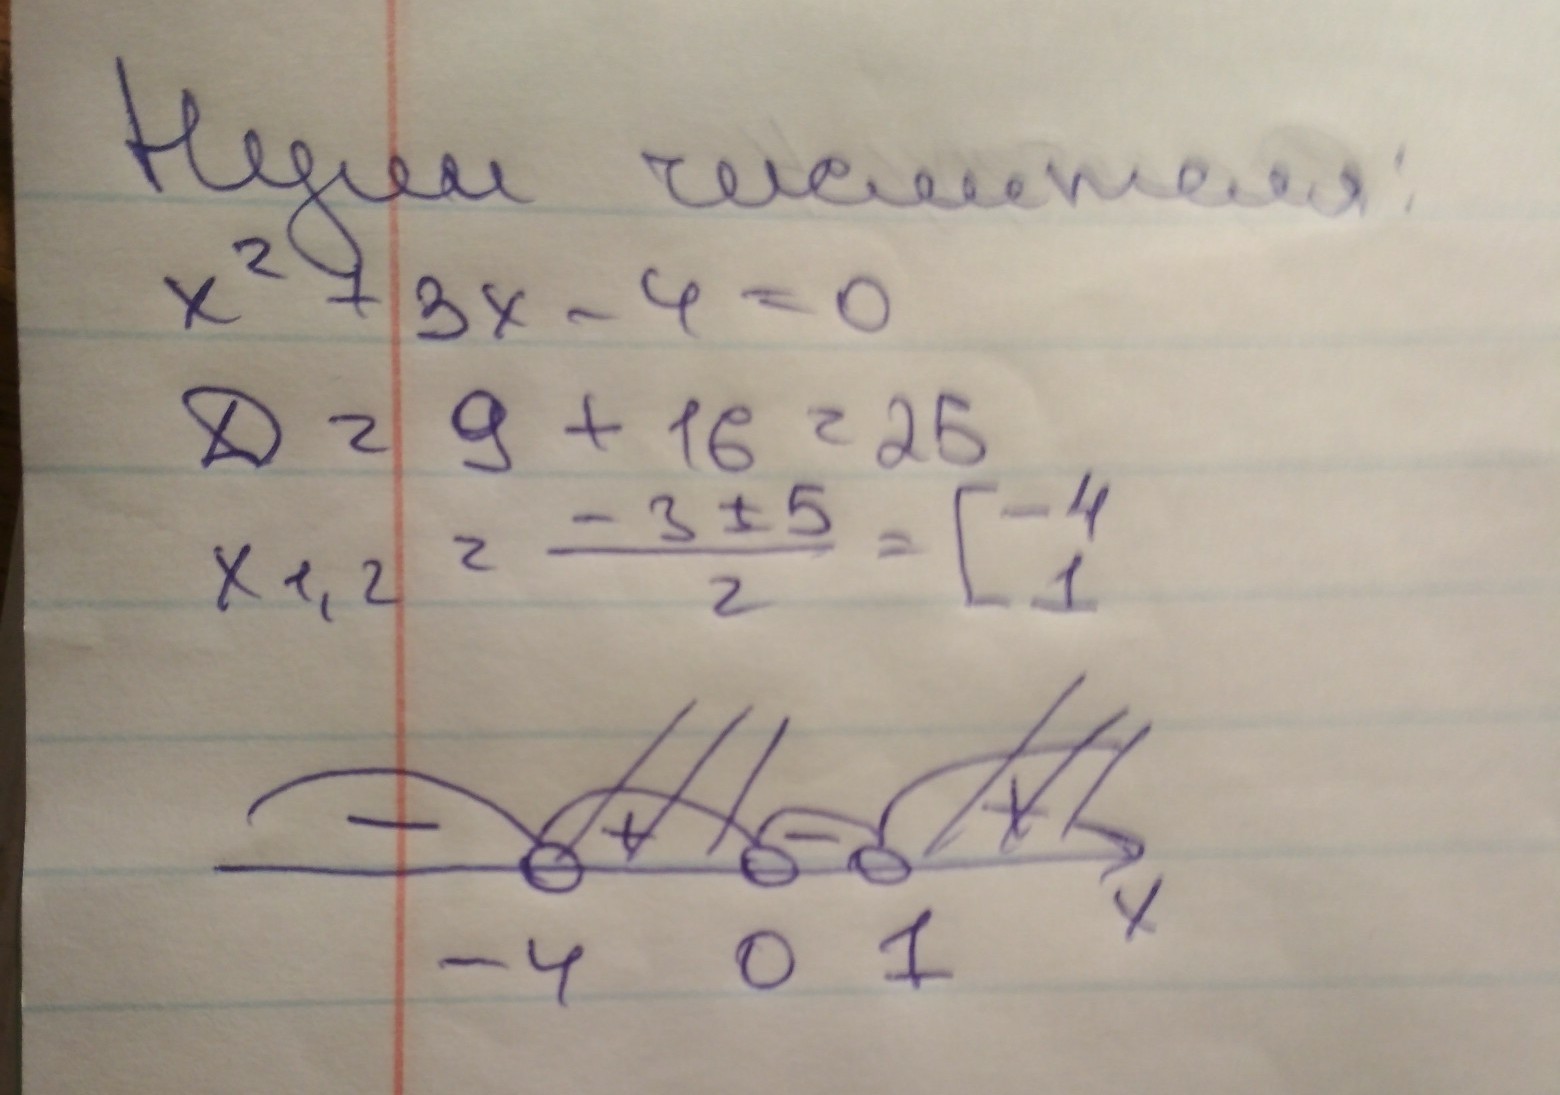 Нули числителя:
x² + 3x - 4 = 0
D = 9 + 16 = 25
x1,2 = (-3 ± 5)/2 = [-4 1
- + - +
-4 0 1 x